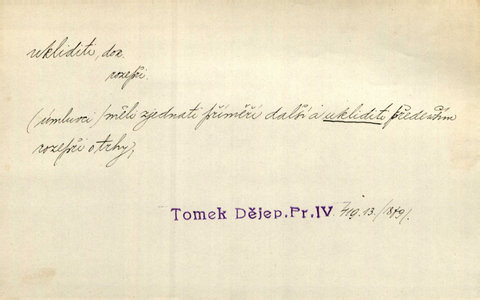 ukliditi, dok.
rozepři.
(úmluvci) měli zjednati příměří další a ukliditi především
rozepři o trhy,
Tomek Dějep. Pr. IV 419. 13. /1879/.